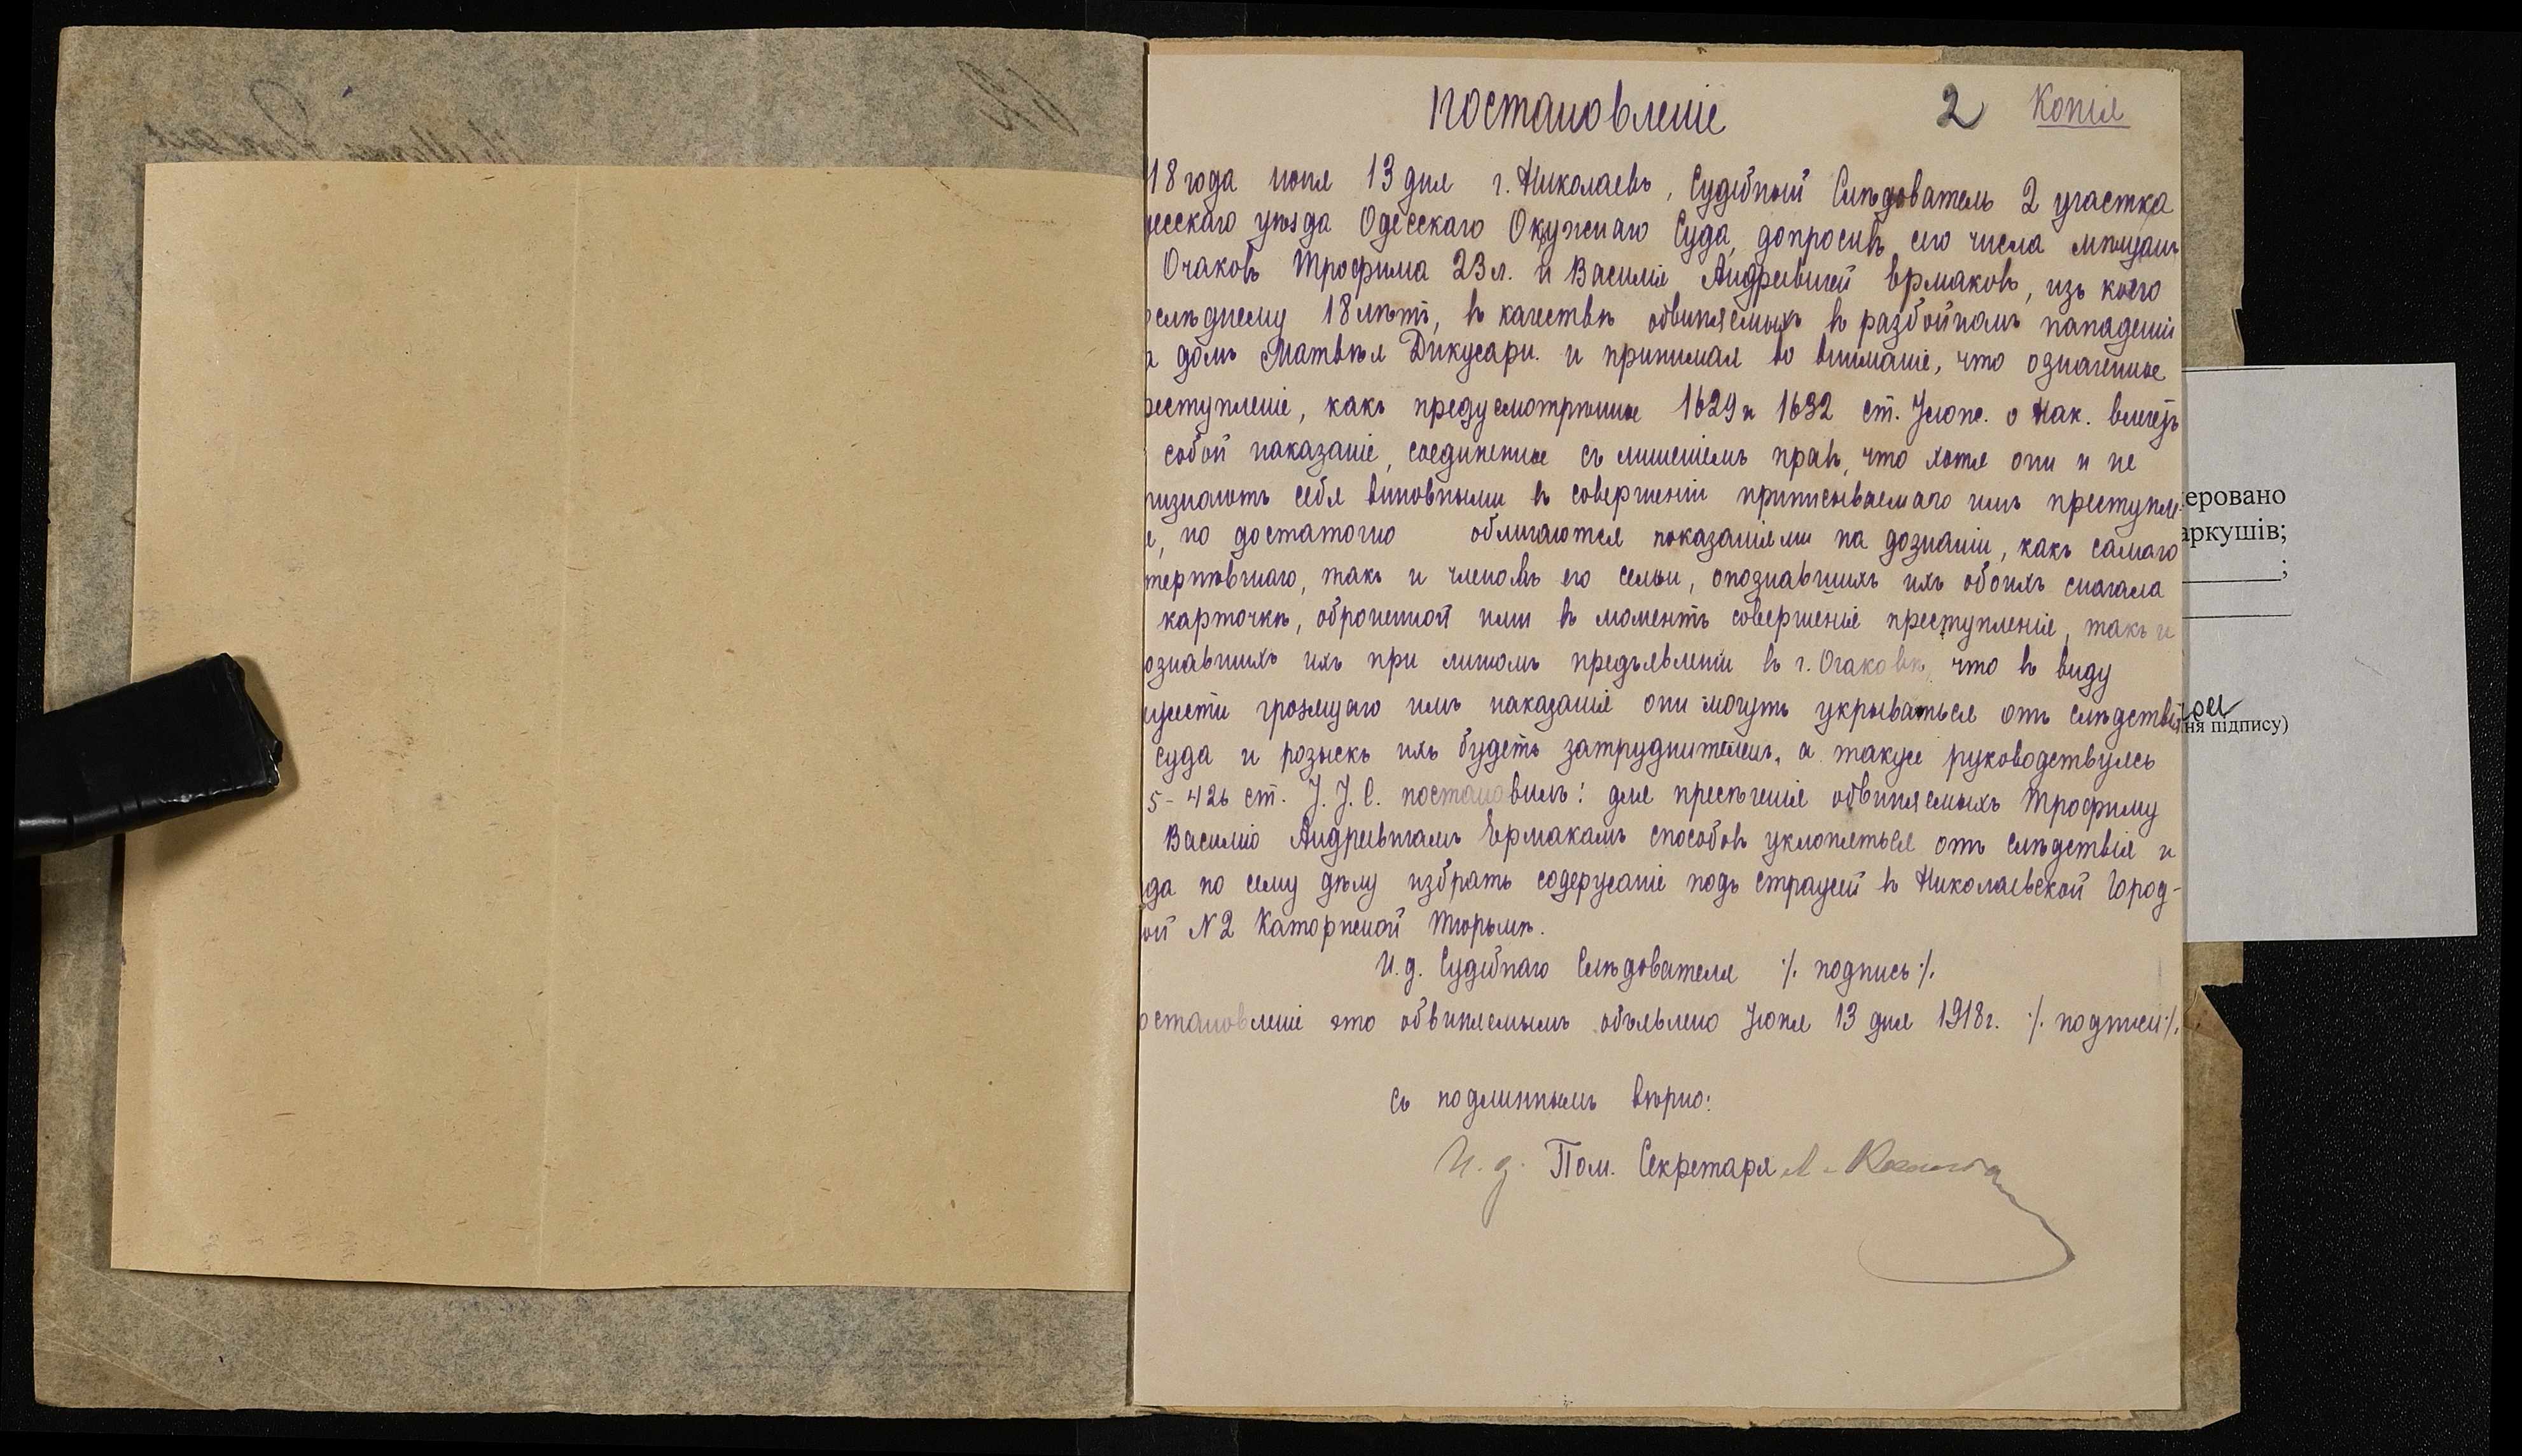 Постановленіе 2 Копія
18 года юня 13 дня г. Николаевъ, Судебный Слѣдователь 2 участка
десскаго уѣзда Одесскаго Окружнаго Суда, допросивъ сего числа мѣщанъ
Очаковъ Трофима 23 л. и Василія Андреевичей Ермаковъ, изъ коего
слѣднему 18 лѣтъ, въ качествѣ обвиняемыхъ въ разбойномъ нападеніи
а домъ Матвѣя Дикусари. и принимая во вниманіе, что означенное
реступленіе, какъ предусмотрѣнное 1629 и 1632 ст. Улож. о Нак. влечетъ
собой наказаніе, соединенное съ лишеніемъ правъ, что хотя они и не
ризнаютъ себя виновными въ совершеніи приписываемаго имъ преступле-
е, но достаточно обличаются показаніями на дознаніи, какъ самаго
терпѣвшаго, такъ и членовъ его семьи, опознавшихъ ихъ обоихъ сначала
карточкѣ, оброненной ими въ моментъ совершенія преступленія, такъ и
ознавшихъ ихъ при личномъ предъявленіи въ г. Очаковѣ, что въ виду
грозящаго имъ наказанія они могутъ укрываться отъ слѣдствія
суда и розыскъ ихъ будетъ затруднителенъ, а также руководствуясь
5-426 ст. У. У. С. постановилъ: для пресѣченія обвиняемыхъ Трофиму
Василію Андреевичамъ Ермакамъ способовъ уклоняться отъ слѣдствія и
да по сему дѣлу избрать содержаніе подъ стражей въ Николаевской Город-
ой N 2 Каторжной Тюрьмѣ.
И.д. Судебнаго Слѣдователя ·/. подпись ·/.
остановленіе это обвиняемымъ объявлено Юня 13 дня 1918 г. ·/. подписи ·/.
съ подлиннымъ вѣрно:
И. д. Пом. Секретаря
еровано
аркушів;
;
ня підпису)